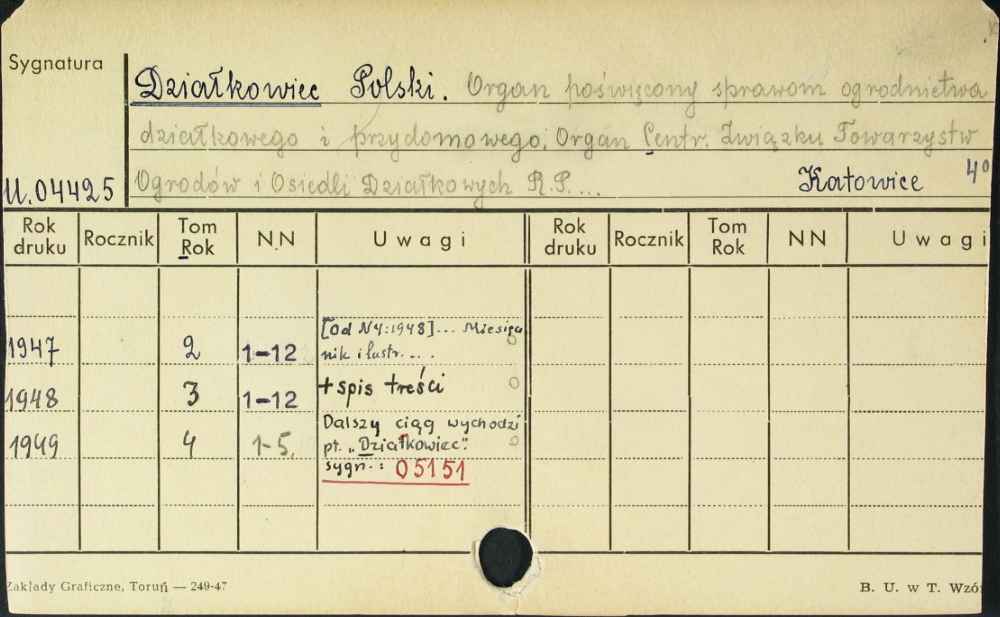 Sygnatura
Działkowiec Polski. Organ poświęcony sprawom ogrodnictwa
działkowego i przydomowego. Organ Centr. Związku Towarzystw
U.04425 Ogrodów i Osiedli Działkowych R.P.... Katowice 4°
Rok druku Rocznik Tom Rok NN Uwagi Rok druku Rocznik Tom Rok NN Uwagi
[od N4:1948]... Miesięcz
1947 2 1-12 nik ilustr. ... .
1948 3 1-12 + spis treści
Dalszy ciąg wychodzi
1949 4 1-5. pt. „Działkowiec".
sygn.: 05151
Zakłady Graficzne, Toruń — 249-47 B. U. w T. Wzór